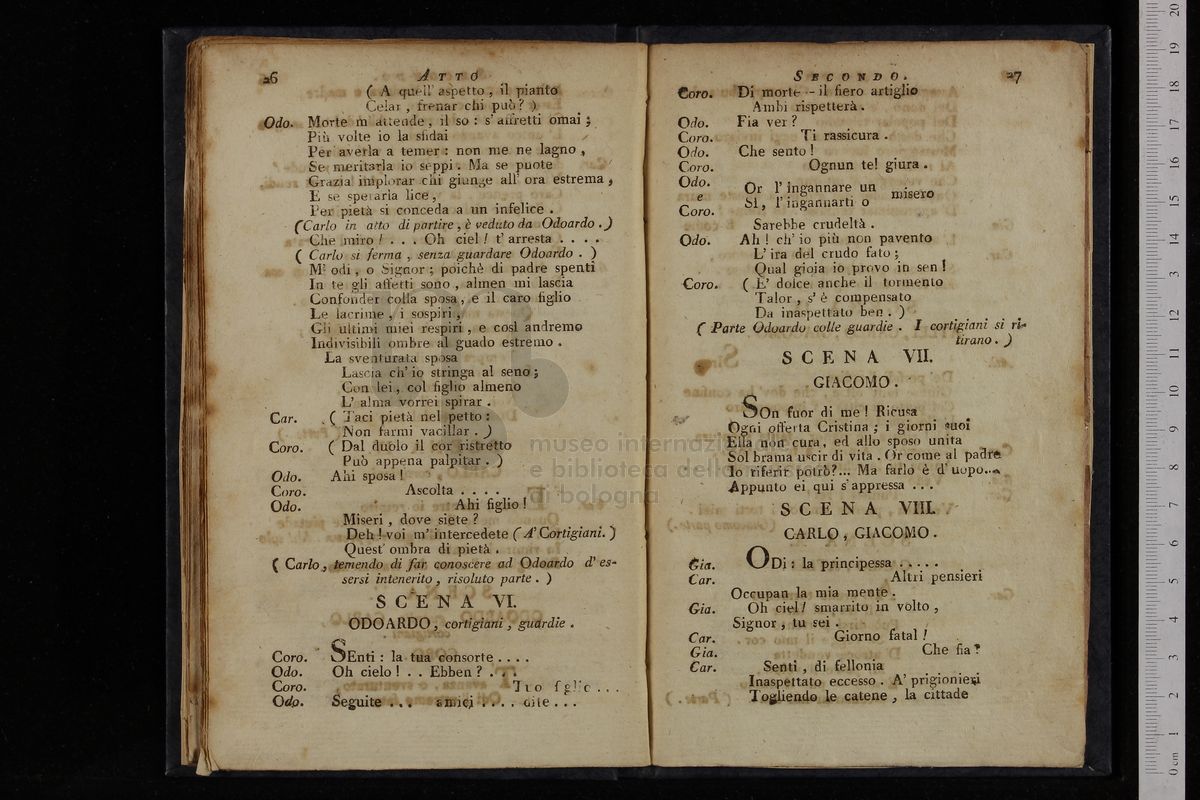 26 ATTO
( A quell' aspetto , il pianto
Celar , frenar chi può? )
Odo. Morte m' attende , il so : s' affretti omai ;
Più volte io la sfidai
Per averla a temer : non me ne lagno ,
Se meritarla io seppi . Ma se puote
Grazia implorar chi giunge all' ora estrema ,
E se sperarla lice ,
Per pietà si conceda a un infelice .
( Carlo in atto di partire , è veduto da Odoardo . )
Che miro ! . . . Oh ciel ! t' arresta . . . .
( Carlo si ferma , senza guardare Odoardo . )
M' odi , o Signor ; poichè di padre spenti
In te gli affetti sono , almen mi lascia
Confonder colla sposa , e il caro figlio
Le lacrime , i sospiri ,
Gli ultimi miei respiri , e così andremo
Indivisibili ombre al guado estremo .
La sventurata sposa
Lascia ch' io stringa al seno ;
Con lei , col figlio almeno
L' alma vorrei spirar .
Car. . ( Taci pietà nel petto :
Non farmi vacillar . )
Coro. ( Dal duolo il cor ristretto
Può appena palpitar . )
Odo. Ahi sposa !
Coro. Ascolta . . . .
Odo. Ahi figlio !
Miseri , dove siete ?
Deh ! voi m' intercedete ( A' Cortigiani. )
Quest' ombra di pietà .
( Carlo , temendo di far conoscere ad Odoardo d' es-
sersi intenerito , risoluto parte . )
SCENA VI.
ODOARDO , cortigiani , guardie .
Coro. SEnti : la tua consorte . . . .
Odo. Oh cielo ! . . Ebben ? . . .
Coro. Tuo figlio . . .
Odo. Seguite . . . amici . . . . dite . . .
SECONDO. 27
Coro. Di morte -- il fiero artiglio
Ambi rispetterà .
Odo. Fia ver ?
Coro. Ti rassicura .
Odo. Che sento !
Coro. Ognun te! giura .
Odo.
e Or l' ingannare un misero
Coro. Sì , l' ingannarti o
Sarebbe crudeltà .
Odo. Ah ! ch' io più non pavento
L' ira del crudo fato ;
Qual gioia io provo in sen !
Coro. ( E' dolce anche il tormento
Talor , s' è compensato
Da inaspettato ben . )
( Parte Odoardo colle guardie . I cortigiani si ri-
tirano . )
SCENA VII.
GIACOMO .
SOn fuor di me ! Ricusa
Ogni offerta Cristina ; i giorni suoi
Ella non cura , ed allo sposo unita
Sol brama uscir di vita . Or come al padre
Io riferir potrò?... Ma farlo è d' uopo...
Appunto ei qui s' appressa . . .
SCENA VIII.
CARLO , GIACOMO .
Gia. ODi : la principessa . . . . .
Car. Altri pensieri
Occupan la mia mente .
Gia. Oh ciel! smarrito in volto ,
Signor , tu sei .
Car. Giorno fatal !
Gia. Che fia ?
Car. Senti , di fellonia
Inaspettato eccesso . A' prigionieri
Togliendo le catene , la cittade
museo internazi
e biblioteca della
di bologna
0 cm 1 2 3 4 5 6 7 8 9 10 11 12 13 14 15 16 17 18 19 20